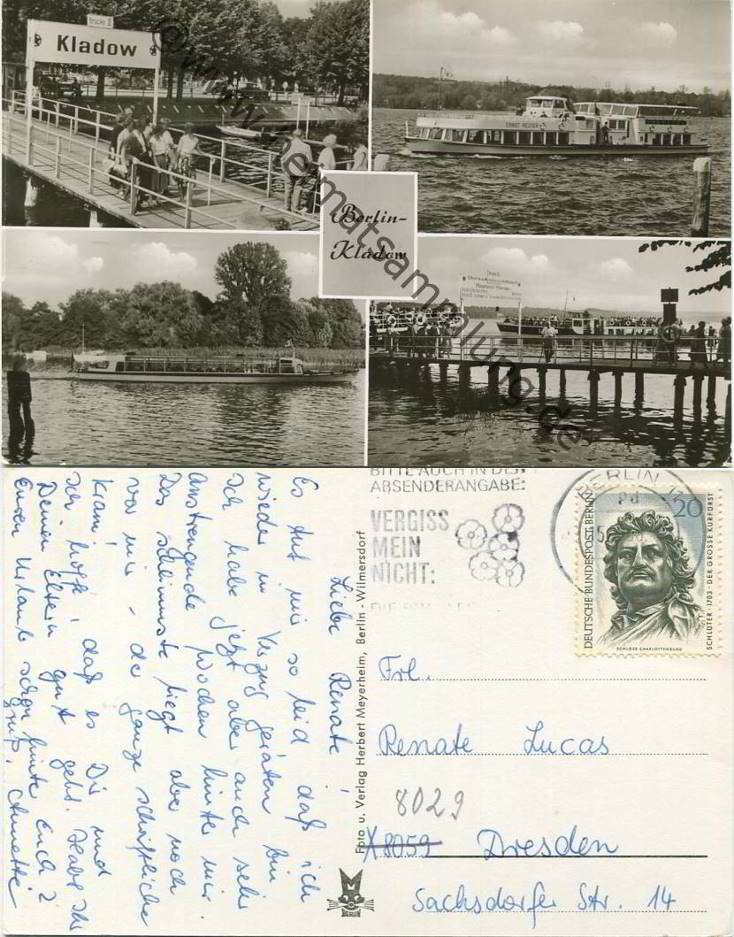 Brücke II
Kladow
ERNST REUTER
Berlin-
Kladow
©www.heimatsammlung.de
BITTE AUCH IN DER
ABSENDERANGABE:
VERGISS
MEIN
NICHT:
BERLIN
20
DEUTSCHE BUNDESPOST BERLIN
SCHLÜTER · 1703 · DER GROSSE KURFÜRST
SCHLOSS CHARLOTTENBURG
Liebe Renate!
Es tut mir so leid, daß ich
wieder in Verzug geraten bin
Ich habe jetzt aber auch sehr
anstrengende Wochen hinter mir.
Das schlimmste liegt aber noch
vor mir – de ganze schriftliche
Kram! 
Ich hoffe, daß es Dir und
Deinen Eltern gut geht. Habt Ihr
Euren Urlaub schon hinter Euch?
Gruß! Annette
Foto u. Verlag Herbert Meyerheim, Berlin - Wilmersdorf
BERLIN
Frl.
Renate Lucas
8029
X8059 Dresden
Sachsdorfer Str. 14